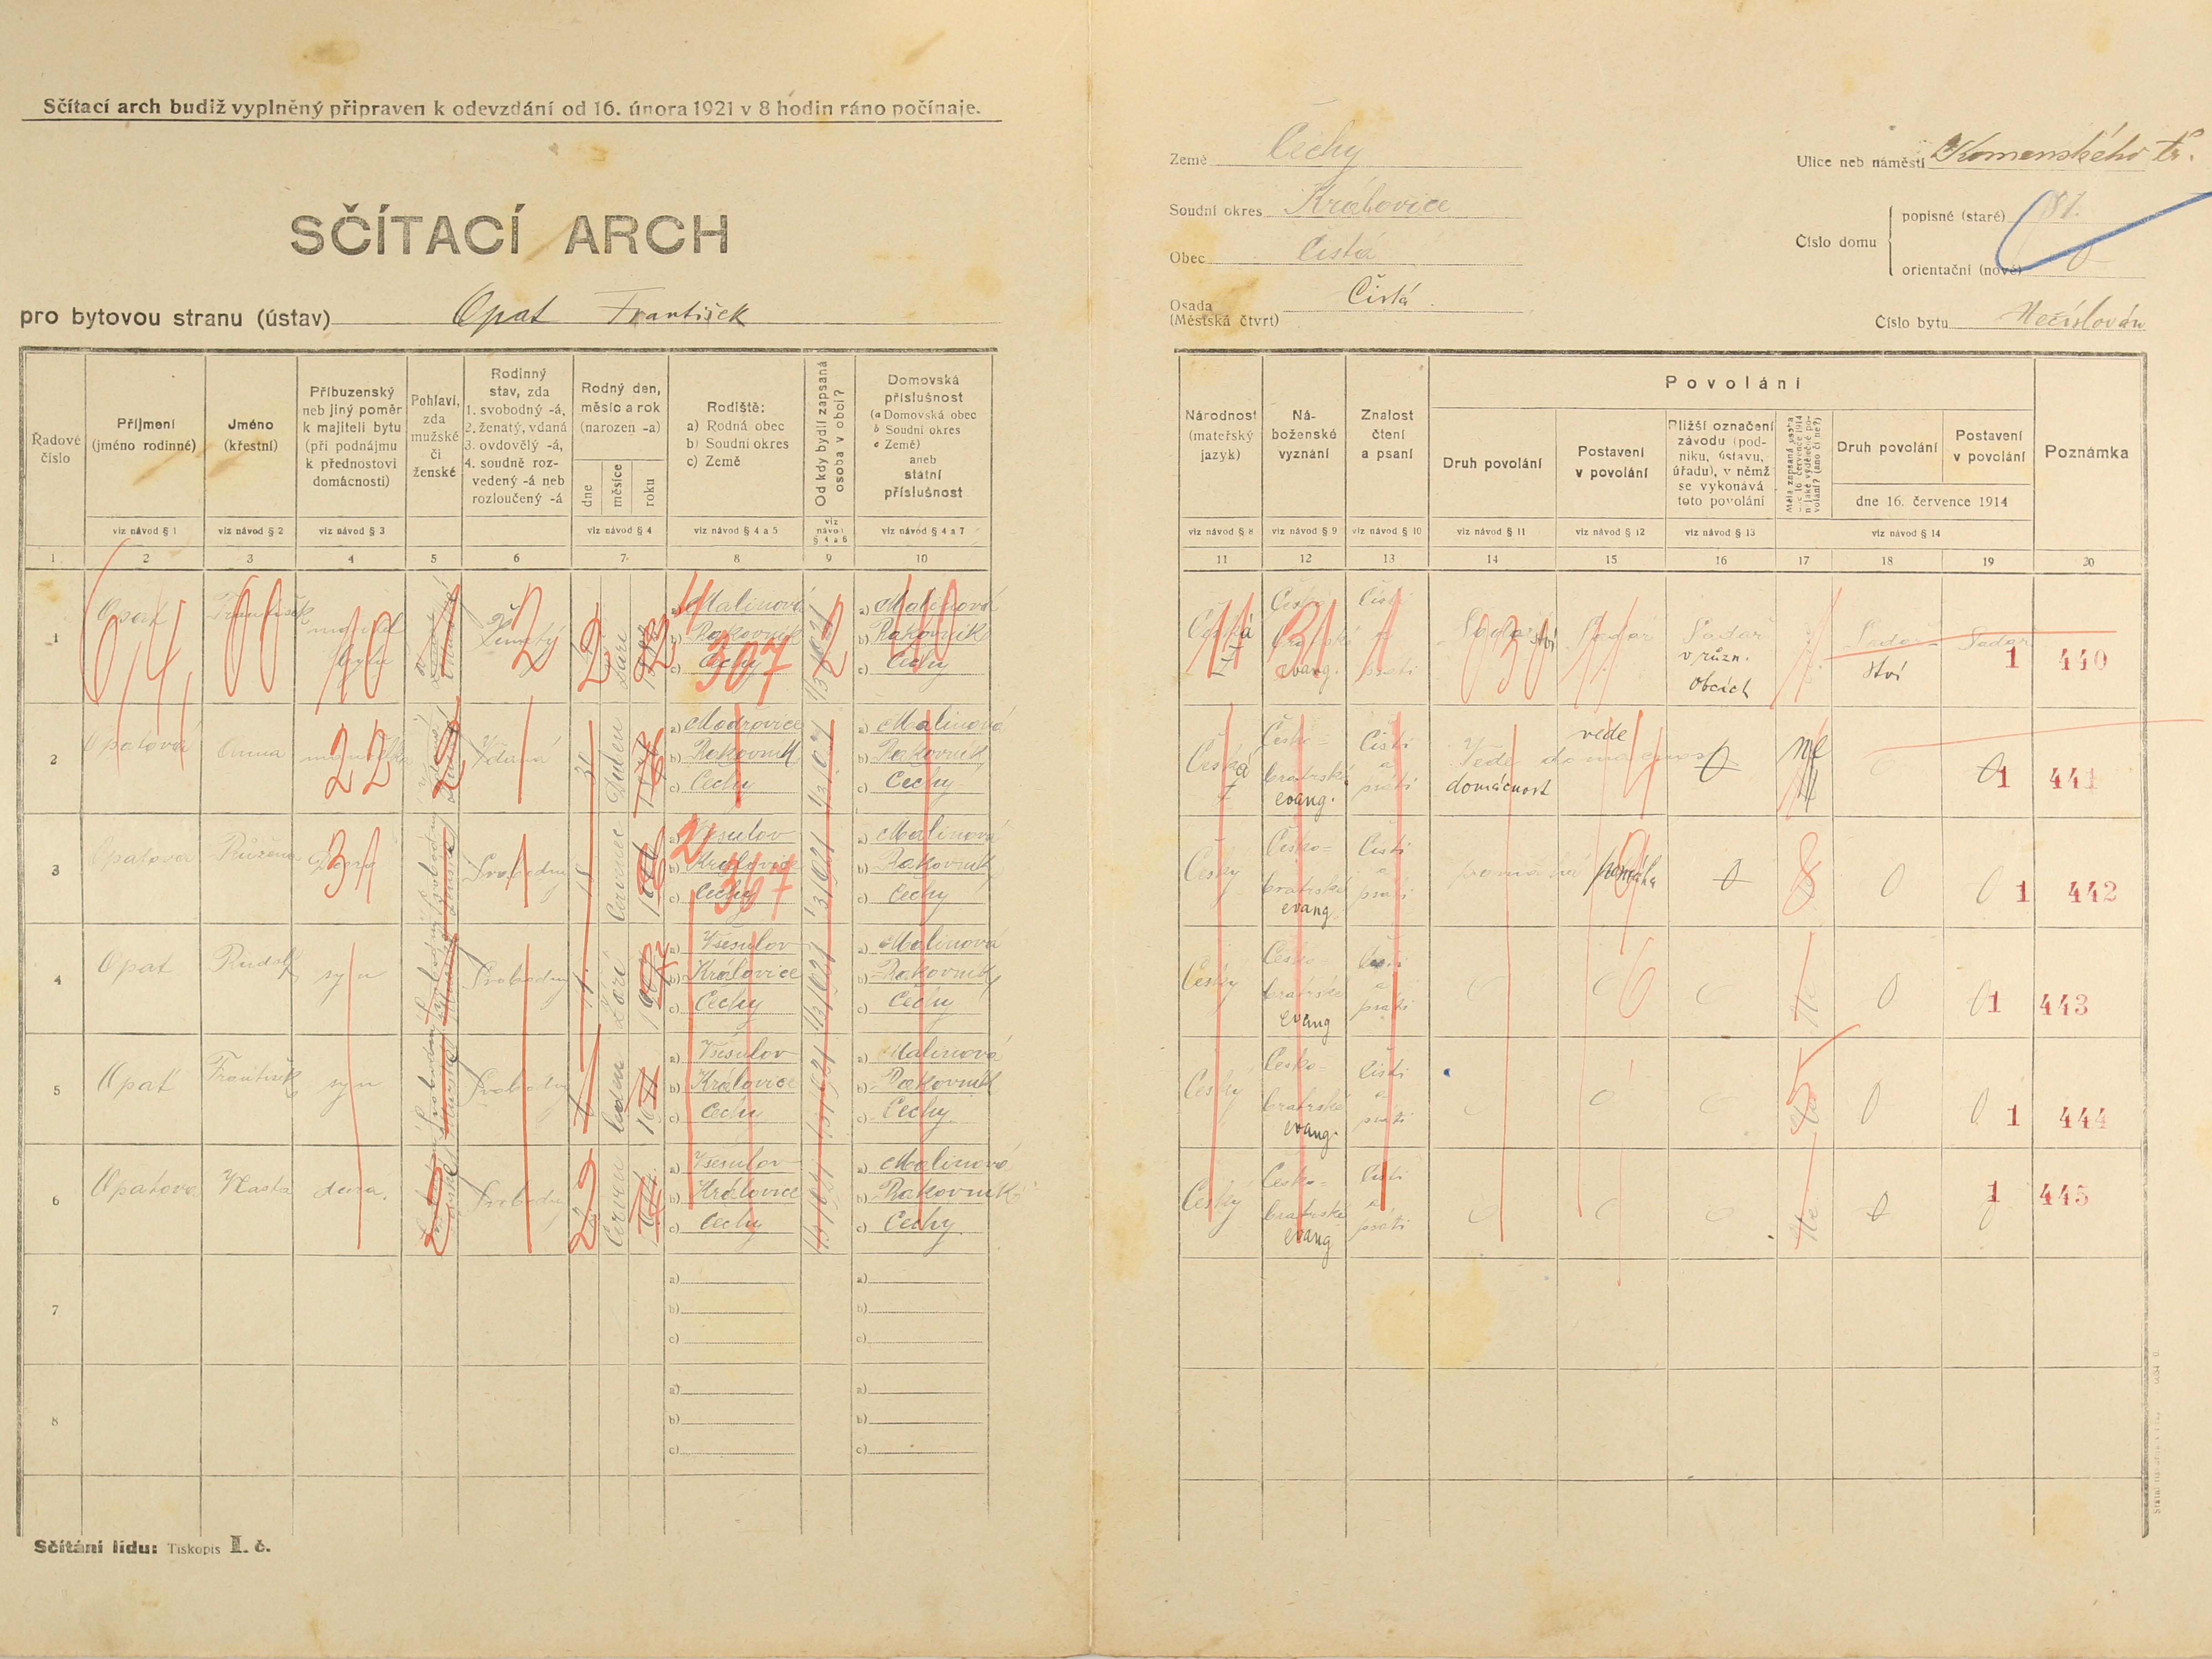 Sčítací arch budiž vyplněný připraven k odevzdání od 16. února 1921 v 8 hodin ráno počínaje.
SČÍTACÍ ARCH
pro bytovou stranu (ústav) Opat František
Země Čechy
Soudní okres Kralovice
Obec Čistá
Osada (Městská čtvrt) Čistá.
Ulice neb náměstí Komenského tř.
Číslo domu
popisné (staré) 81.
orientační (nové)
Číslo bytu Nečíslován
Řadové číslo
Příjmení (jméno rodinné)
Jméno (křestní)
Příbuzenský neb jiný poměr k majiteli bytu (při podnájmu k přednostovi domácnosti)
Pohlaví, zda mužské či ženské
Rodinný stav, zda 1. svobodný -á, 2. ženatý, vdaná 3. ovdovělý -á, 4. soudně rozvedený -á neb rozloučený -á
Rodný den, měsíc a rok (narozen -a)
dne měsíce roku
Rodiště: a) Rodná obec b) Soudní okres c) Země
Od kdy bydlí zapsaná osoba v obci?
Domovská příslušnost (a Domovská obec b Soudní okres c Země) aneb státní příslušnost
Národnost (mateřský jazyk)
Náboženské vyznání
Znalost čtení a psaní
Povolání
Druh povolání
Postavení v povolání
Bližší označení závodu (podniku, ústavu, úřadu), v němž se vykonává toto povolání
Měla zapsaná osoba dne 16. července 1914 nějaké výdělečné povolání? (ano či ne?)
Druh povolání
Postavení v povolání
dne 16. července 1914
Poznámka
viz návod § 1 viz návod § 2 viz návod § 3 viz návod § 4 viz návod § 4 a 5 viz návod § 4 a 6 viz návod § 4 a 7
viz návod § 8 viz návod § 9 viz návod § 10 viz návod § 11 viz návod § 12 viz návod § 13 viz návod § 14
1 2 3 4 5 6 7 8 9 10 11 12 13 14 15 16 17 18 19 20
1 Opat František majitel bytu Ženatý 2 Září a) Malinová b) Rakovník c) Čechy 307 a) Malinová b) Rakovník c) Čechy
Česká evang. Čísti a psáti Sadařství Sadař Sadař v různ. obcích Sadařství Sadař 1 440
2 Opatová Anna manželka 22 Vdaná 30 Duben a) Modřovice b) Rakovník c) Čechy a) Malinová b) Rakovník c) Čechy
Česká Česko= bratrské evang. Čísti a psáti Vede domácnost vede 0 ne 0 0 1 441
3 Opatova Růžena dcera 31 Svobodný 18 Červenec a) Všesulov b) Kralovice c) Čechy 367 a) Malinová b) Rakovník c) Čechy
Český Česko= bratrské evang. Čísti a psáti pomáhá 0 8 0 0 1 442
4 Opat Rudolf syn Svobodný Září a) Všesulov b) Královice c) Čechy a) Malinová b) Rakovník c) Čechy
Český Česko= bratrské evang čísti a psáti 0 0 0 Ne 0 0 1 443
5 Opat František syn Svobodný 6 leden a) Všesulov b) Královice c) Čechy a) Malinová b) Rakovník c) Čechy
Český Česko= bratrské evang. čísti a psáti 0 0 0 Ne 0 0 1 444
6 Opatova Vlasta dcera. Svobodný 22 Červen a) Všesulov b) Královice c) Čechy a) Malinová b) Rakovník c) Čechy
Český Česko= bratrské evang čísti a psáti 0 0 0 Ne 0 0 1 445
7 a) b) c) a) b) c)
8 a) b) c) a) b) c)
Sčítání lidu: Tiskopis I. č.